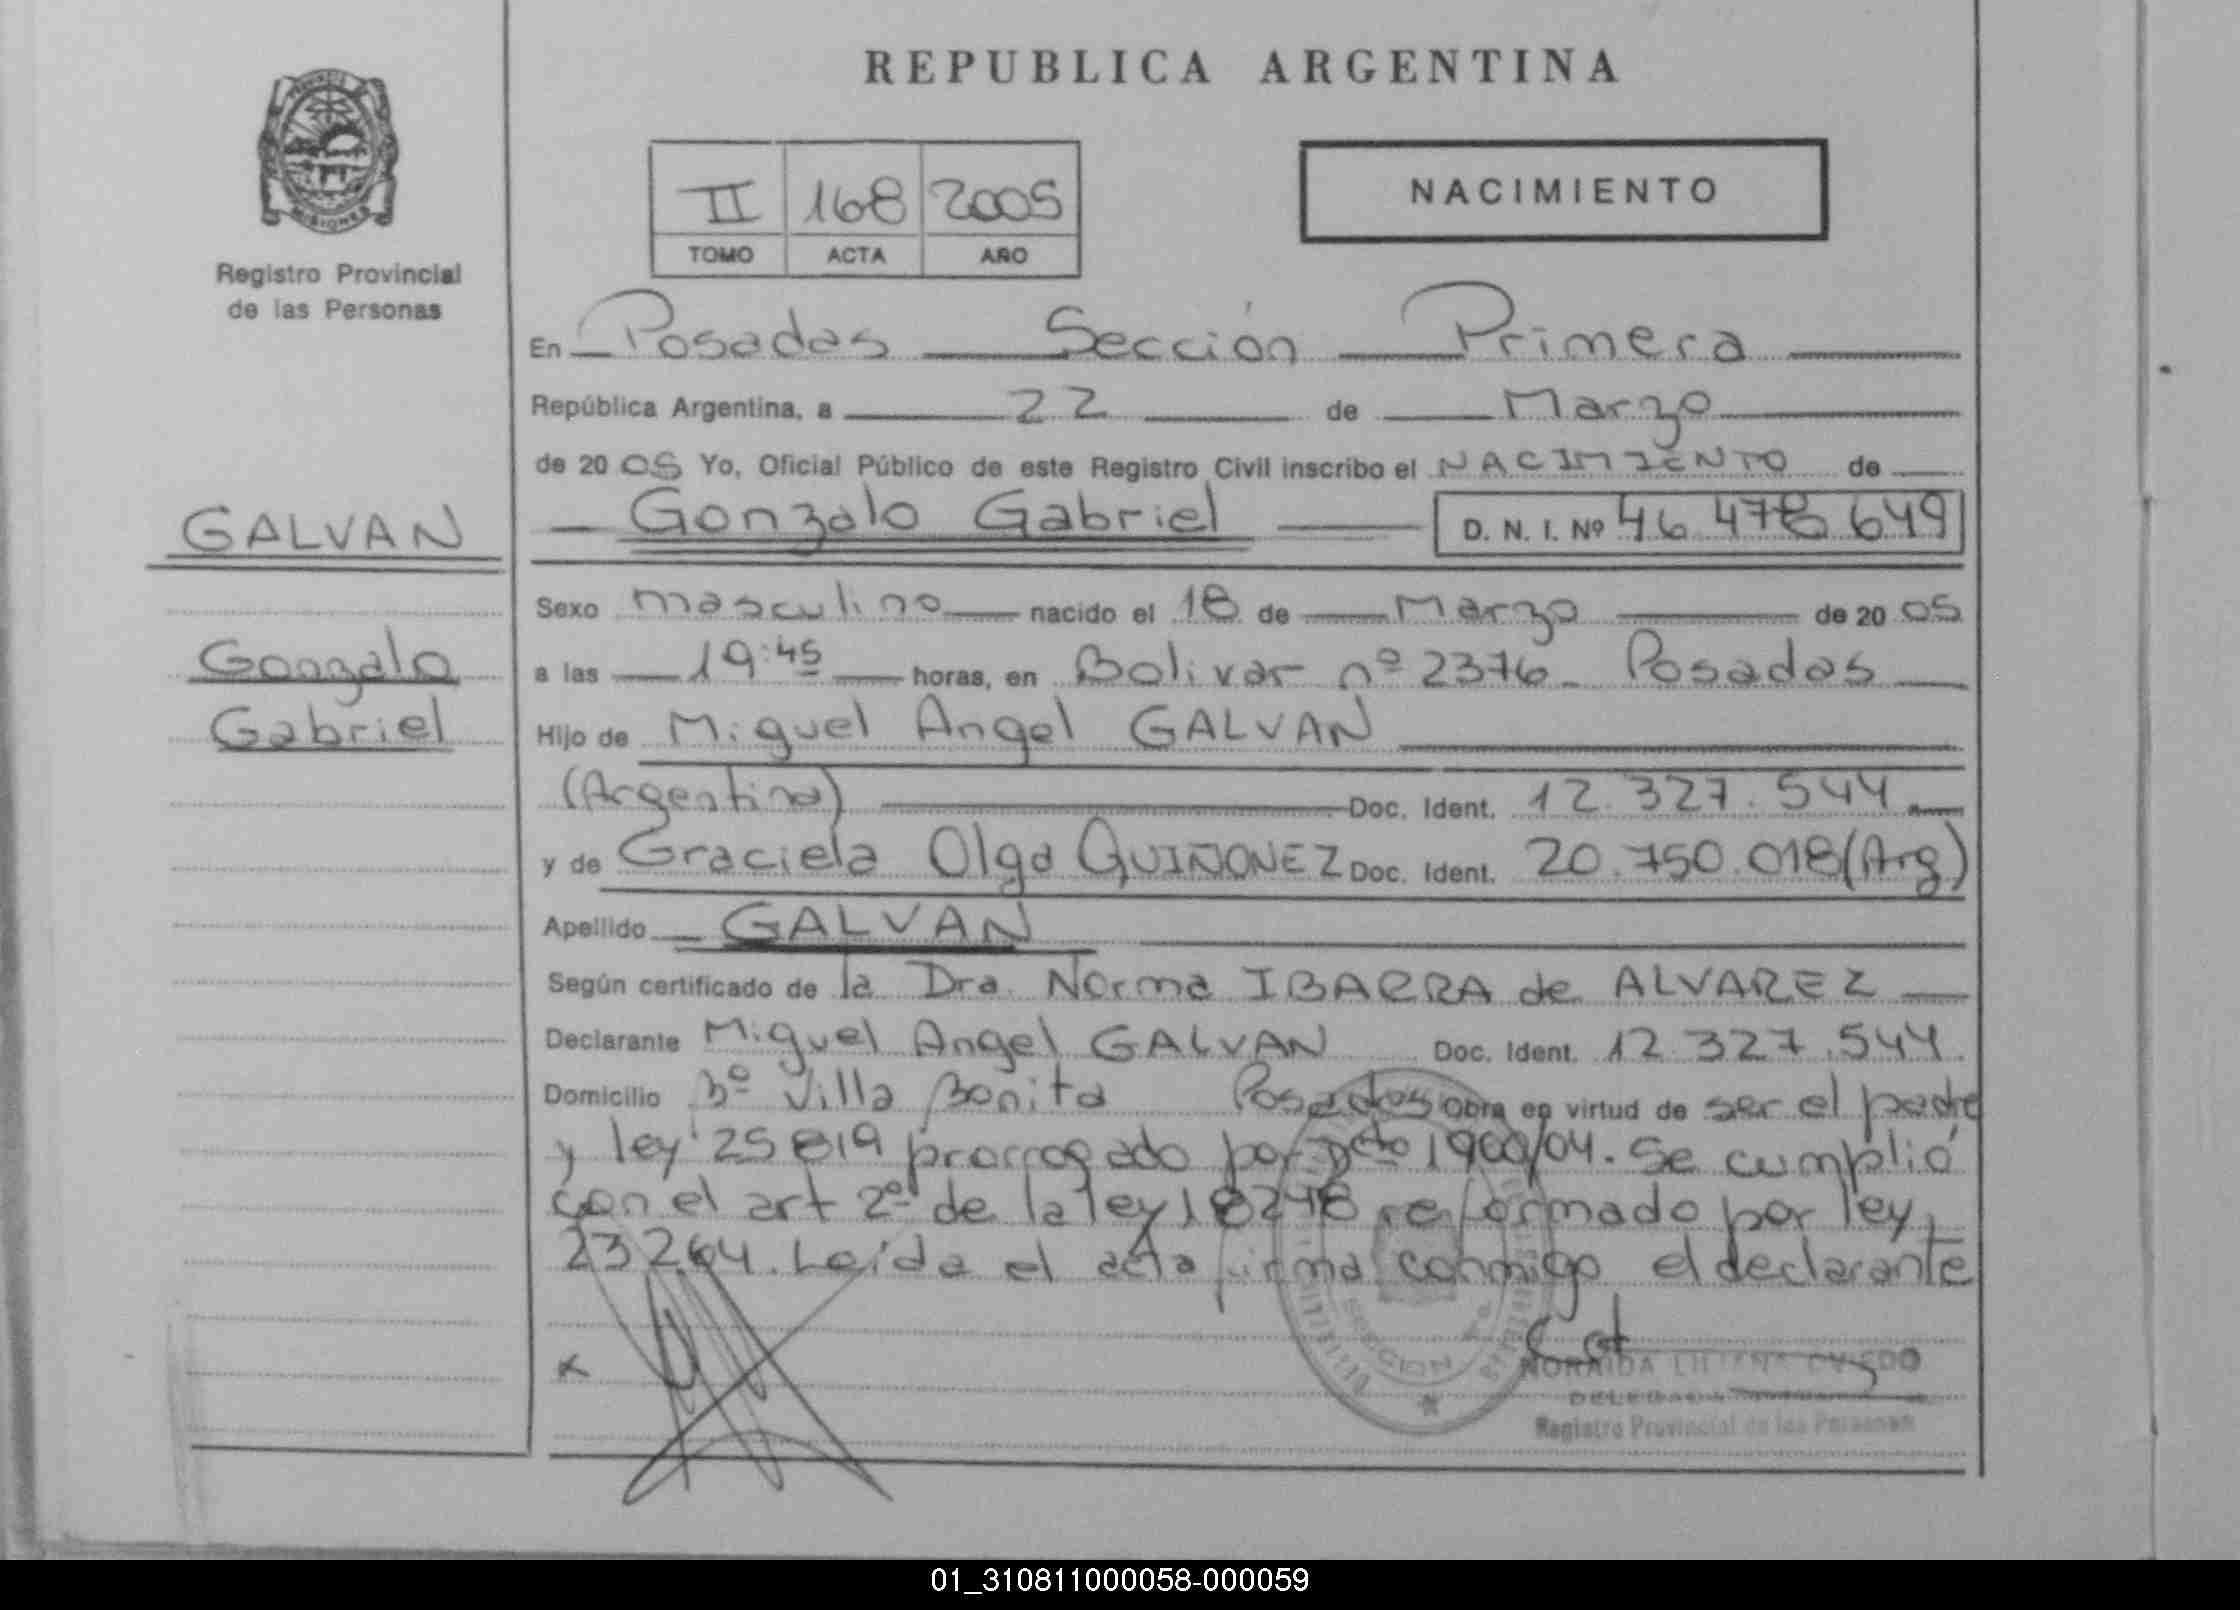 REPUBLICA ARGENTINA
PROVINCIA DE
MISIONES
Registro Provincial
de las Personas
II 168 2005
TOMO ACTA AÑO
NACIMIENTO
En Posadas Sección Primera
República Argentina, a 22 de Marzo
de 2005 Yo, Oficial Público de este Registro Civil inscribo el NACIMIENTO de
GALVAN
Gonzalo Gabriel D. N. I. Nº 46.478.649
Gonzalo
Gabriel
Sexo masculino nacido el 18 de Marzo de 2005
a las 19:45 horas, en Bolivar nº 2376 - Posadas
Hijo de Miguel Angel GALVAN
(Argentino) Doc. Ident. 12.327.544
y de Graciela Olga QUIÑONEZ Doc. Ident. 20.750.018 (Arg)
Apellido GALVAN
Según certificado de la Dra. Norma IBARRA de ALVAREZ
Declarante Miguel Angel GALVAN Doc. Ident. 12.327.544
Domicilio Bº Villa Bonita Posadas Obra en virtud de ser el padre
y ley 25819 prorrogado por Dcto 1900/04. Se cumplió
con el art 2º de la ley 18248 reformado por ley
23264. Leída el acta firma conmigo el declarante
SECCION
NORAIDA LILIANA OVIEDO
DELEGADA
Registro Provincial de las Personas
01_310811000058-000059